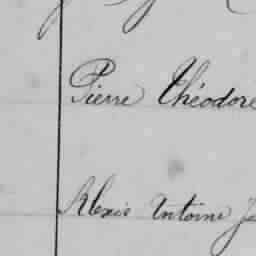 Pierre Théodore
Alexis Antoine